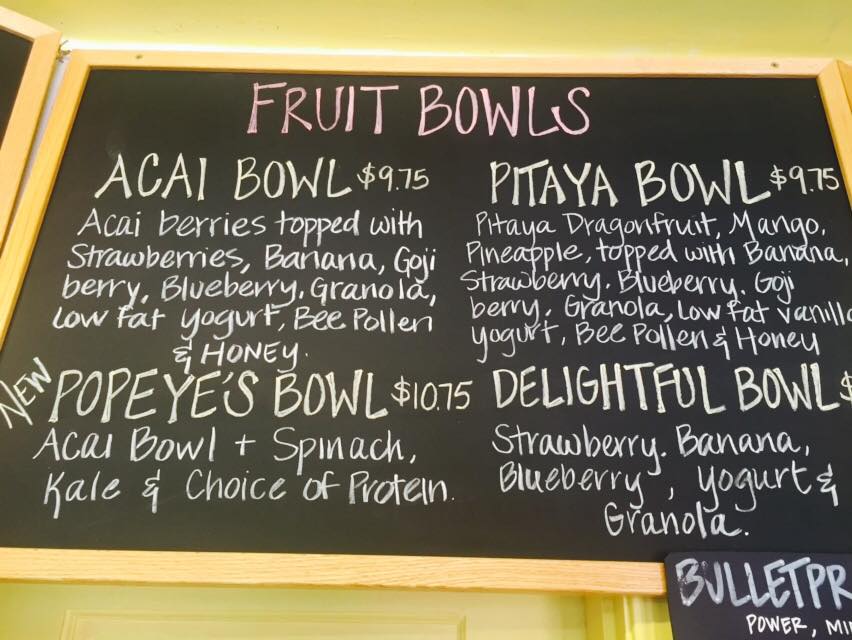 FRUIT BOWLS
ACAI BOWL $9.75
Acai berries topped with
Strawberries, Banana, Goji
berry, Blueberry, Granola,
Low Fat yogurt, Bee Pollen
& HONEY.
PITAYA BOWL $9.75
Pitaya Dragonfruit, Mango,
Pineapple, topped with Banana,
Strawberry, Blueberry, Goji
berry, Granola, Low Fat vanilla
yogurt, Bee Pollen & Honey
NEW POPEYE'S BOWL $10.75
Acai Bowl + Spinach,
Kale & Choice of Protein.
DELIGHTFUL BOWL $
Strawberry, Banana,
Blueberry, yogurt &
Granola.
BULLETPR
POWER, MI